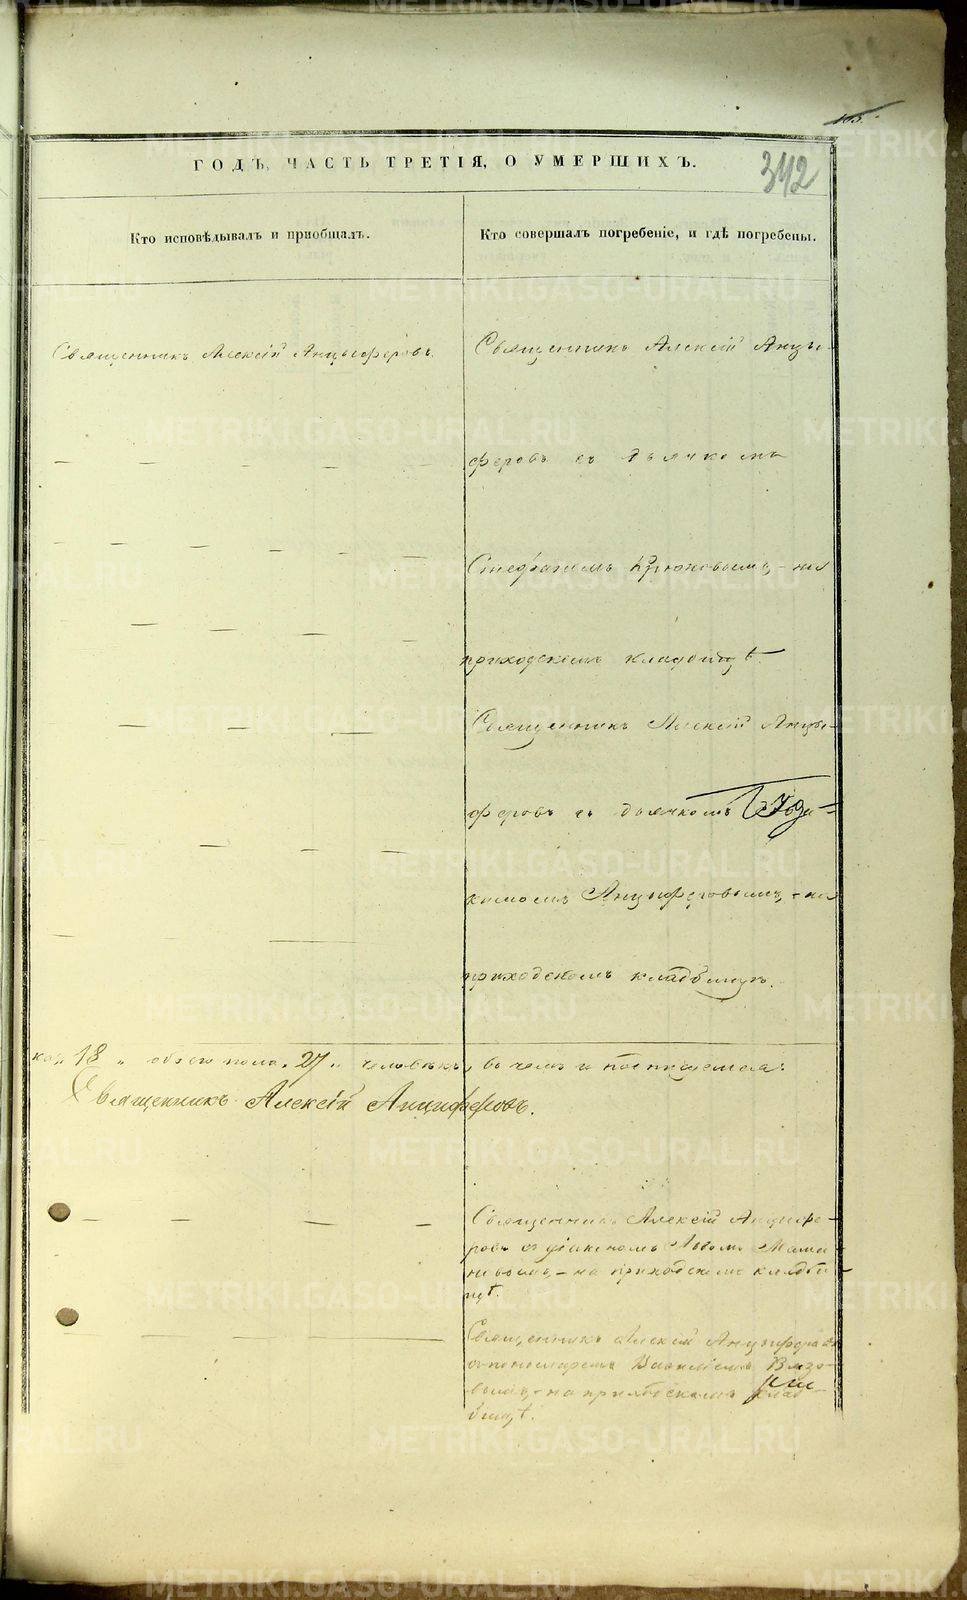 165.
ГОДЪ, ЧАСТЬ ТРЕТІЯ, О УМЕРШИХЪ.
342
Кто исповѣдывалъ и пріобщалъ.
Кто совершалъ погребеніе, и гдѣ погребены.
Священникъ Алексій Анцыферовъ.
Священникъ Алексій Анцы-
феровъ съ дьячкомъ
Стефаномъ Крюковымъ, - на
приходскомъ кладбищѣ.
Священникъ Алексій Анцы-
феровъ съ дьячкомъ
Анцыферовымъ, - на
приходскомъ кладбищѣ.
18 „ обоего пола „ 27 „ человѣкъ, въ чемъ и подпишемся:
Священникъ Алексій Анциферовъ.
Священникъ Алексій Анцыфе-
ровъ съ діакономъ Мами-
нымъ, - на приходскомъ кладби-
щѣ.
Священникъ Алексій Анцыферовъ
съ пономаремъ Василіемъ Вязо-
вымъ, - на приходскомъ клад-
бищѣ.
METRIKI.GASO-URAL.RU